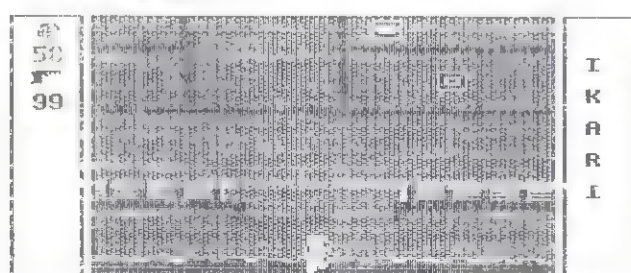 50
99
I
K
A
R
I